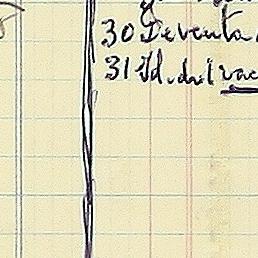 30 De venta
31 Id. del vac